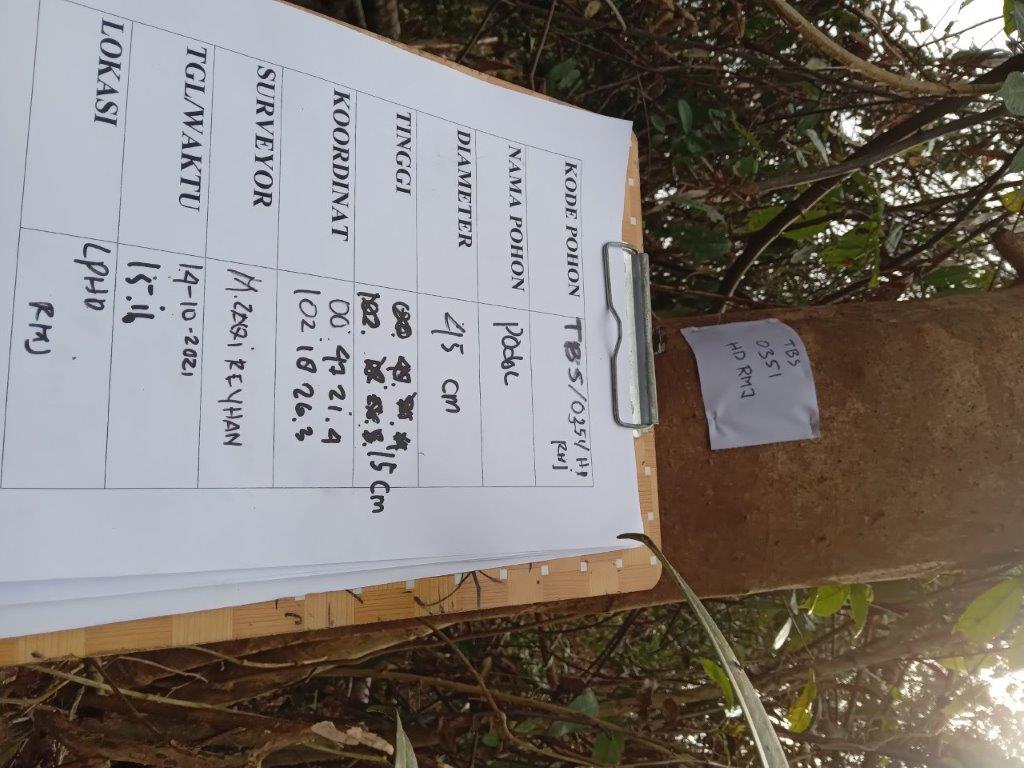 KODE POHON TBS/0351/HD
RMJ
NAMA POHON PODOL
DIAMETER 45 cm
TINGGI 15 cm
KOORDINAT 00. 47 21.9
102 18 26.3
SURVEYOR M.ZOGI REYHAN
TGL/WAKTU 14-10-2021
15.16
LOKASI LPHD
RMJ
TBS
0351
HD RMJ